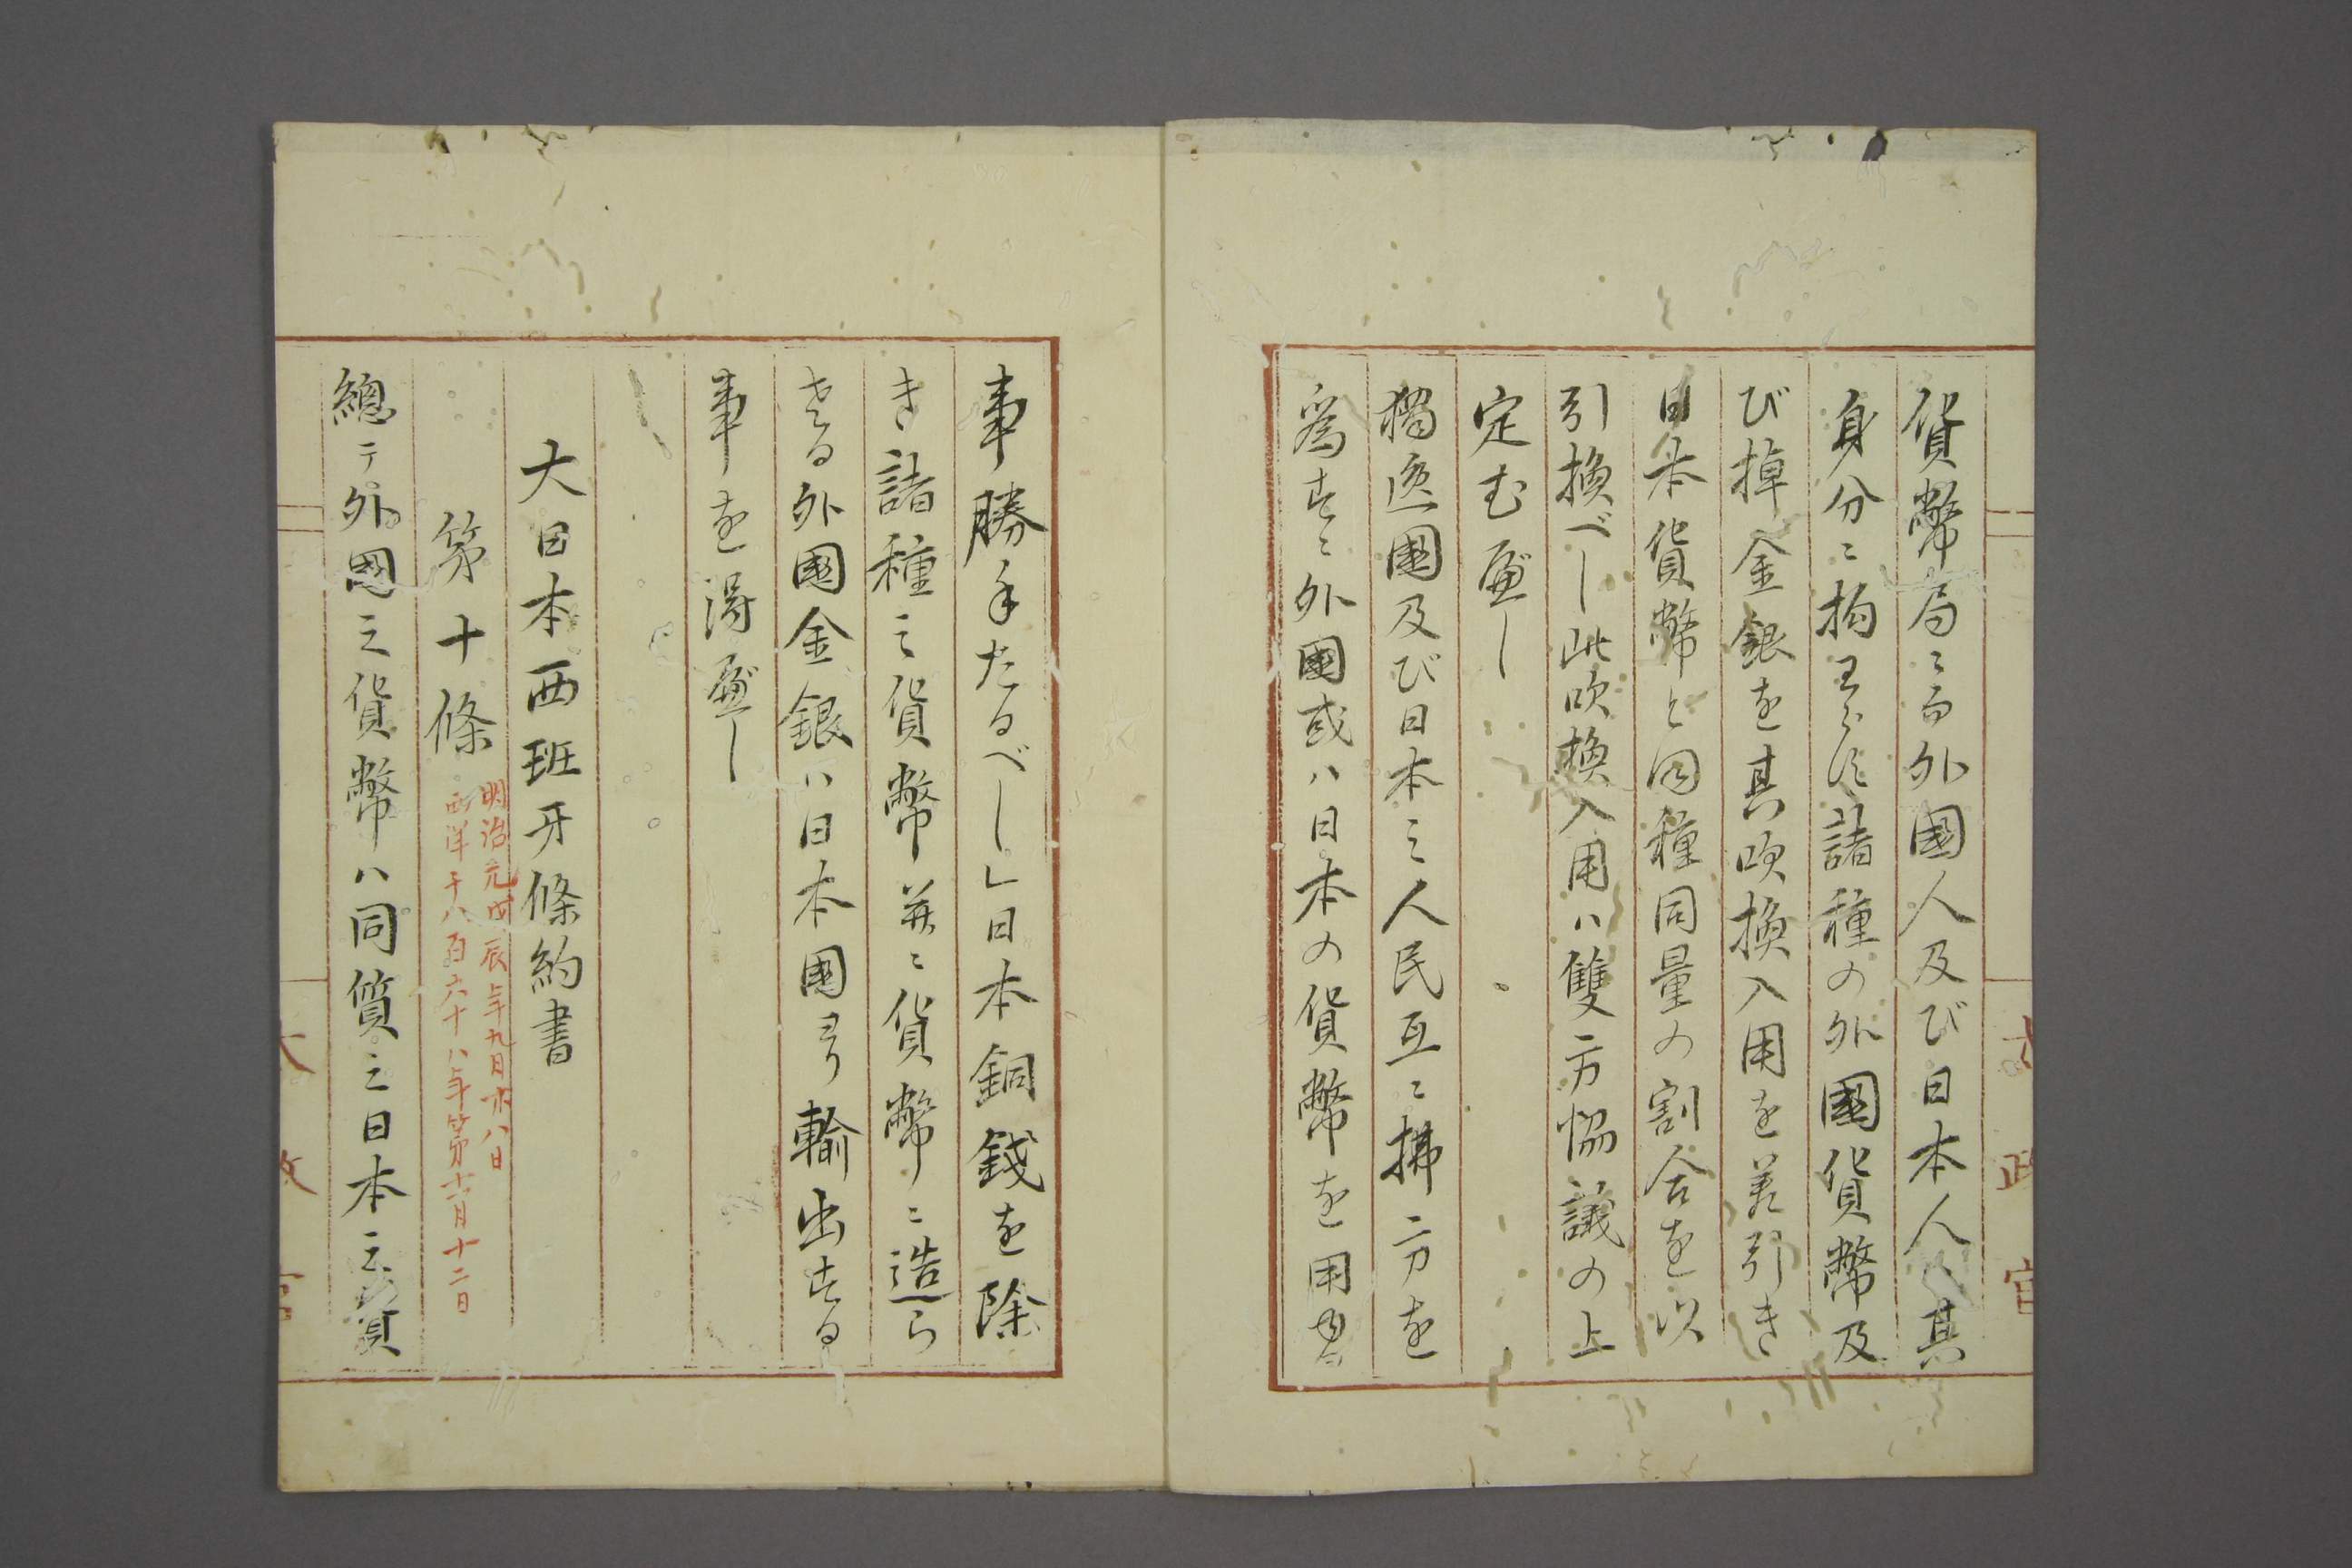 貨幣局ニ而外國人及び日本人ハ其
身分ニ拘ヲらバ諸種の外國貨幣及
び掉金銀を其吹換入用を差引き
日本貨幣と同種同量の割合を以
引換べし此吹換入用ハ雙方協議の上
定む扁し
獨逸國及び日本之人民互ニ拂方を
為すニ外國或ハ日本の貨幣を用ゆる
事勝手たるべし」日本銅錢を除
き諸種之貨幣並ニ貨幣ニ造ら
ざる外國金銀ハ日本國ゟ輸出する
事を得扁し
大日本西班牙條約書
第十條
明治元戊辰年九月廿八日
西洋千八百六十八年第十一月十二日
總テ外國之貨幣ハ同質之日本之貨
太政官
太政官